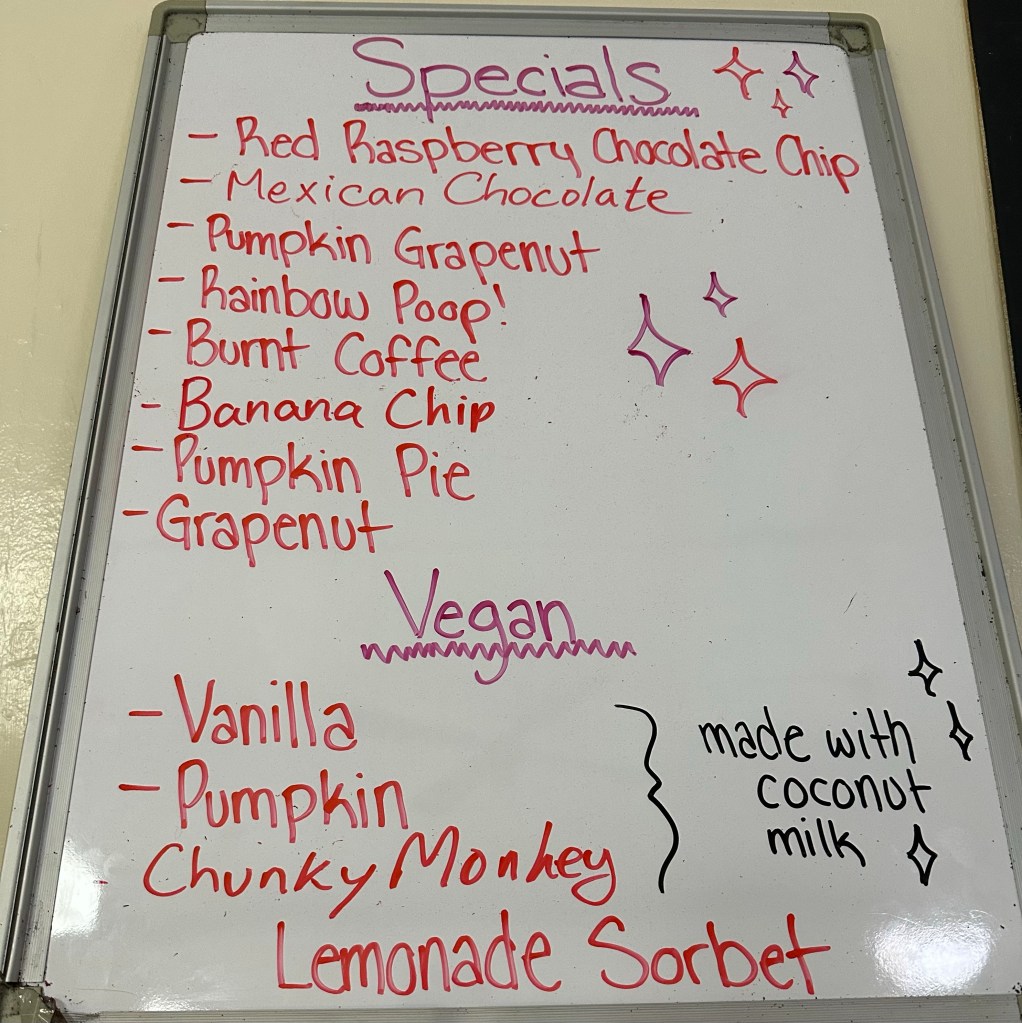 Specials
- Red Raspberry Chocolate Chip
- Mexican Chocolate
- Pumpkin Grapenut
- Rainbow Poop!
- Burnt Coffee
- Banana Chip
- Pumpkin Pie
- Grapenut
Vegan
- Vanilla
- Pumpkin
- Chunky Monkey
made with
coconut
milk
Lemonade Sorbet